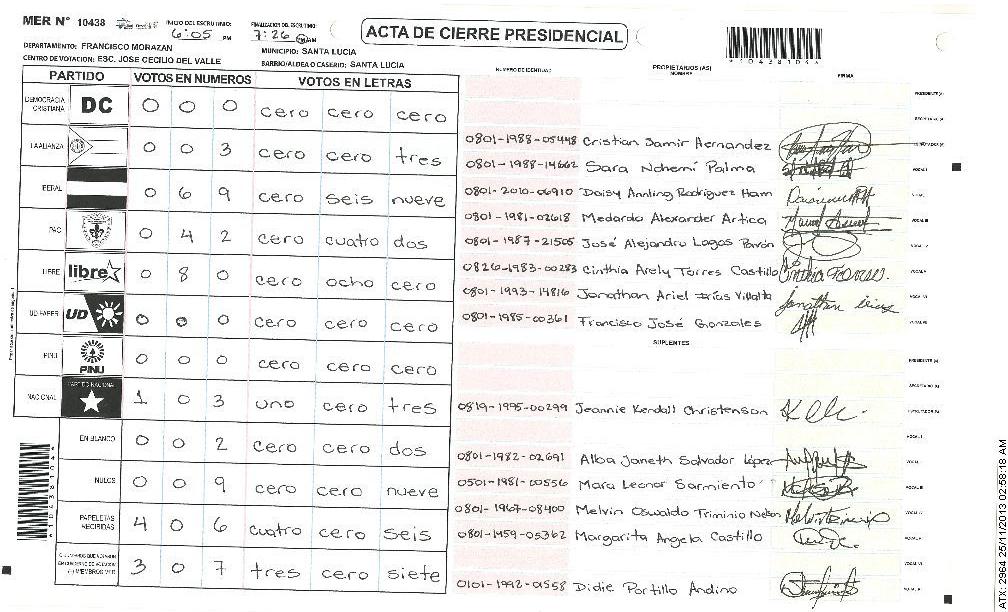 MER N° 10438 INICIO DEL ESCRUTINIO: 6:05 PM FINALIZACION DEL ESCRUTINIO: 7:26 PM ACTA DE CIERRE PRESIDENCIAL
DEPARTAMENTO: FRANCISCO MORAZAN MUNICIPIO: SANTA LUCIA *10438104*
CENTRO DE VOTACION: ESC. JOSE CECILIO DEL VALLE BARRIO/ALDEA O CASERIO: SANTA LUCIA
PARTIDO VOTOS EN NUMEROS VOTOS EN LETRAS
DEMOCRACIA CRISTIANA DC 0 0 0 cero cero cero
LA ALIANZA 0 0 3 cero cero tres
LIBERAL 0 6 9 cero seis nueve
PAC 0 4 2 cero cuatro dos
LIBRE libre 0 8 0 cero ocho cero
UD FAPER UD 0 0 0 cero cero cero
PINU PINU 0 0 0 cero cero cero
NACIONAL PARTIDO NACIONAL 1 0 3 uno cero tres
EN BLANCO 0 0 2 cero cero dos
NULOS 0 0 9 cero cero nueve
PAPELETAS RECIBIDAS 4 0 6 cuatro cero seis
3 0 7 tres cero siete
NUMERO DE IDENTIDAD PROPIETARIOS (AS) NOMBRE FIRMA
PRESIDENTE (A)
SECRETARIO (A)
0801-1988-05448 Cristian Samir Hernandez ESCRUTADOR (A)
0801-1988-14662 Sara Nohemi Palma VOCAL I
0801-2010-06910 Daisy Annling Rodriguez Ham
0801-1981-02618 Medardo Alexander Artica VOCAL III
0801-1987-21505 José Alejandro Lagos Pavón
0826-1983-00283 Cinthia Arely Torres Castillo Cinthia Torres. VOCAL V
0801-1993-14816 Jonathan Ariel Frías Villalta VOCAL VI
0801-1985-00361 Francisco José Gonzales VOCAL VII
SUPLENTES
PRESIDENTE (A)
SECRETARIO (A)
0819-1995-00299 Jeannie Kendall Christenson ESCRUTADOR (A)
VOCAL I
0801-1982-02691 Alba Janeth Salvador López
0501-1981-00556 Mara Leonor Sarmiento VOCAL III
0801-1967-08400 Melvin Oswaldo Triminio Nelson VOCAL IV
0801-1959-05362 Margarita Angela Castillo VOCAL V
VOCAL VI
0101-1992-01558 Didie Portillo Andino
*10438104*
ATX-2964 25/11/2013 02:58:18 AM